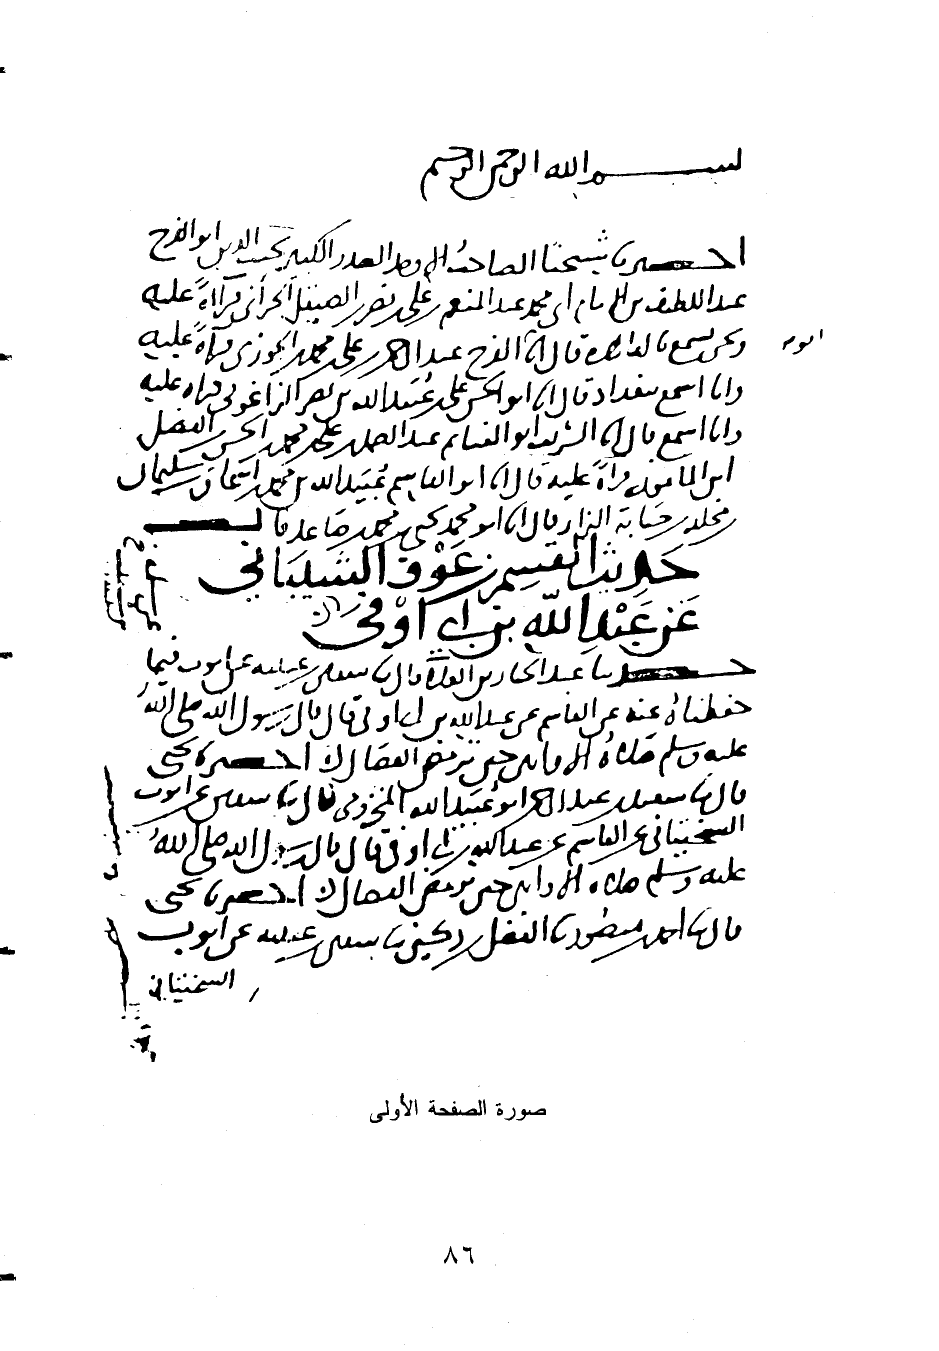 بسم الله الرحمن الرحيم
اخبرنا شيخنا الصاحب الصدر الكبير نجيب الدين ابو الفرج
عبد اللطيف بن الامام ابي محمد عبد المنعم بن علي بن نصر بن الصيقل الحراني قراءة عليه
ونحن نسمع بالقاهرة قال انا ابو الفرج عبد الرحمن بن علي بن محمد بن الجوزي قراءة عليه
وانا اسمع ببغداد قال انا ابو الحسن علي بن عبيد الله بن نصر الزاغوني قراه عليه
وانا اسمع قال انا الشريف ابو الغنائم عبد الصمد بن علي بن محمد بن الحسن بن الفضل
ابن المامون قراءة عليه قال انا ابو القاسم عبيد الله بن محمد بن اسحاق بن سليمان
بن مخلد بن حبابة البزاز قال انا ابو محمد يحيى بن محمد بن صاعد قال
حديث القسم بن عوف الشيباني
عن عبد الله بن ابي اوفى
حدثنا عبد الجبار بن العلاء قال نا سفين بن عيينه عن ايوب فيما
حفظناه عنه عن القاسم عن عبد الله بن ابي اوفى قال قال رسول الله صلى الله
عليه وسلم صلاة الاوابين حين ترمض الفصال اخبرنا يحيى
قال نا سعيد بن عبد الرحمن ابو عبيد الله المخزومي قال نا سفين عن ايوب
السختياني عن القاسم عن عبد الله بن ابي اوفى قال قال رسول الله صلى الله
عليه وسلم صلاه الاوابين حين ترمض الفصال اخبرنا يحيى
قال نا احمد بن منصور نا الفضل بن دكين نا سفين بن عيينه عن ايوب
السختياني
صورة الصفحة الأولى
٨٦